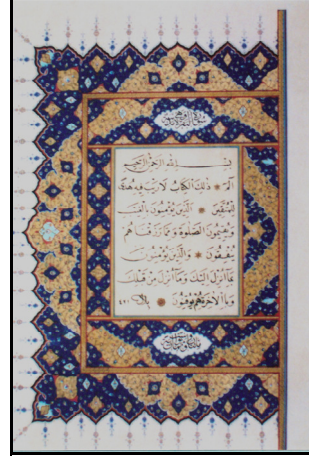 بسم الله الرحمن الرحيم
الم ذلك الكتاب لا ريب فيه هدى
للمتقين الذين يؤمنون بالغيب
ويقيمون الصلوة ومما رزقناهم
ينفقون والذين يؤمنون
بما أنزل إليك وما أنزل من قبلك
وبالآخرة هم يوقنون